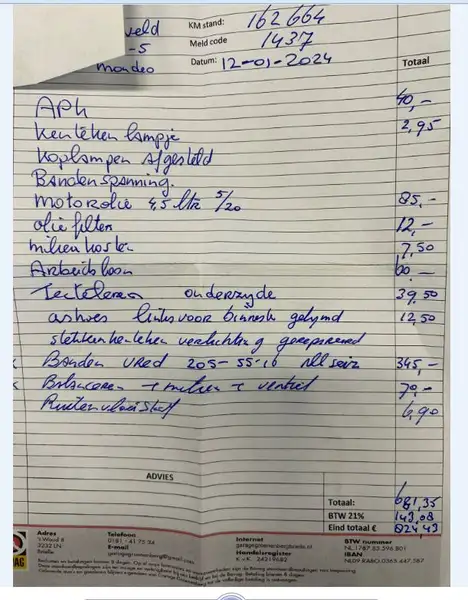 veld
-5
mondeo
KM stand: 162664
Meld code 1437
Datum: 12-01-2024
Totaal
APK 40,-
Kenteken lampje 2,95
Koplampen afgesteld
Bandenspanning.
Motorolie 4,5 ltr 5/20 85,-
olie filter 12,-
milieu kosten 7,50
Arbeidsloon 60,-
Tectyleren onderzyde 39,50
ashoes linksvoor binneste gelymd 12,50
stekker kenteken verlichting gerepareerd
Banden vred 205-55-16 All seiz 345,-
Balanceren + + ventiel 70,-
Ruitenvloeistof 6,90
ADVIES
Totaal: 681,35
BTW 21% 143,08
Eind totaal € 824,43
Adres
't Woud 8
3232 LN
Brielle
Telefoon
0181 - 41 75 34
E-mail
Internet
Handelsregister
K.v.K. 24219682
BTW nummer
IBAN